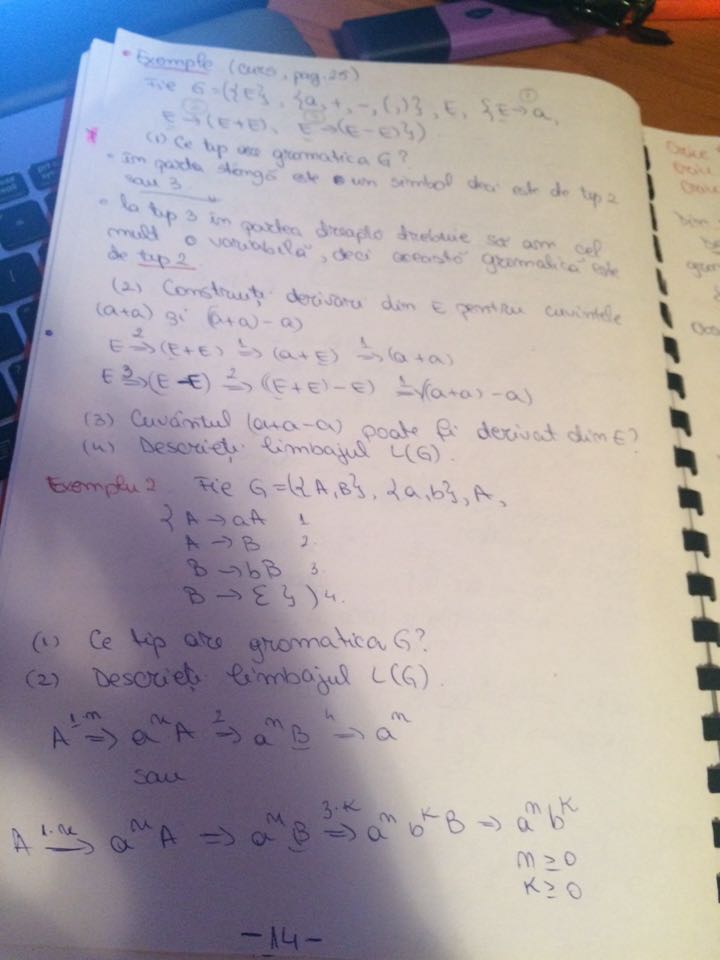 • Exemple (curs, pag. 25)
Fie G=({E}, {a,+,-,(,)}, E, {E→a, ①
② E→(E+E), ③ E→(E-E)})
* (1) Ce tip are gramatica G?
- în partea stângă este un simbol deci este de tip 2
sau 3.
• la tip 3 în partea dreaptă trebuie să am cel
mult o variabilă, deci această gramatică este
de tip 2
(2) Construiți derivări din E pentru cuvintele
(a+a) și ((a+a)-a)
• E 2⇒ (E+E) 1⇒ (a+E) 1⇒ (a+a)
E 3⇒ (E-E) 2⇒ ((E+E)-E) 1⇒ ((a+a)-a)
(3) Cuvântul (a+a-a) poate fi derivat din E?
(4) Descrieți limbajul L(G).
Exemplu 2. Fie G=({A,B}, {a,b}, A,
{A→aA 1
A→B 2.
B→bB 3.
B→Ɛ}) 4.
(1) Ce tip are gramatica G?
(2) Descrieți limbajul L(G).
A 1·n⇒ aⁿA 2⇒ aⁿB 4⇒ aⁿ
sau
A 1·n→ aⁿA ⇒ aⁿB 3·k⇒ aⁿbᵏB ⇒ aⁿbᵏ
n≥0
k≥0
-14-
Orice